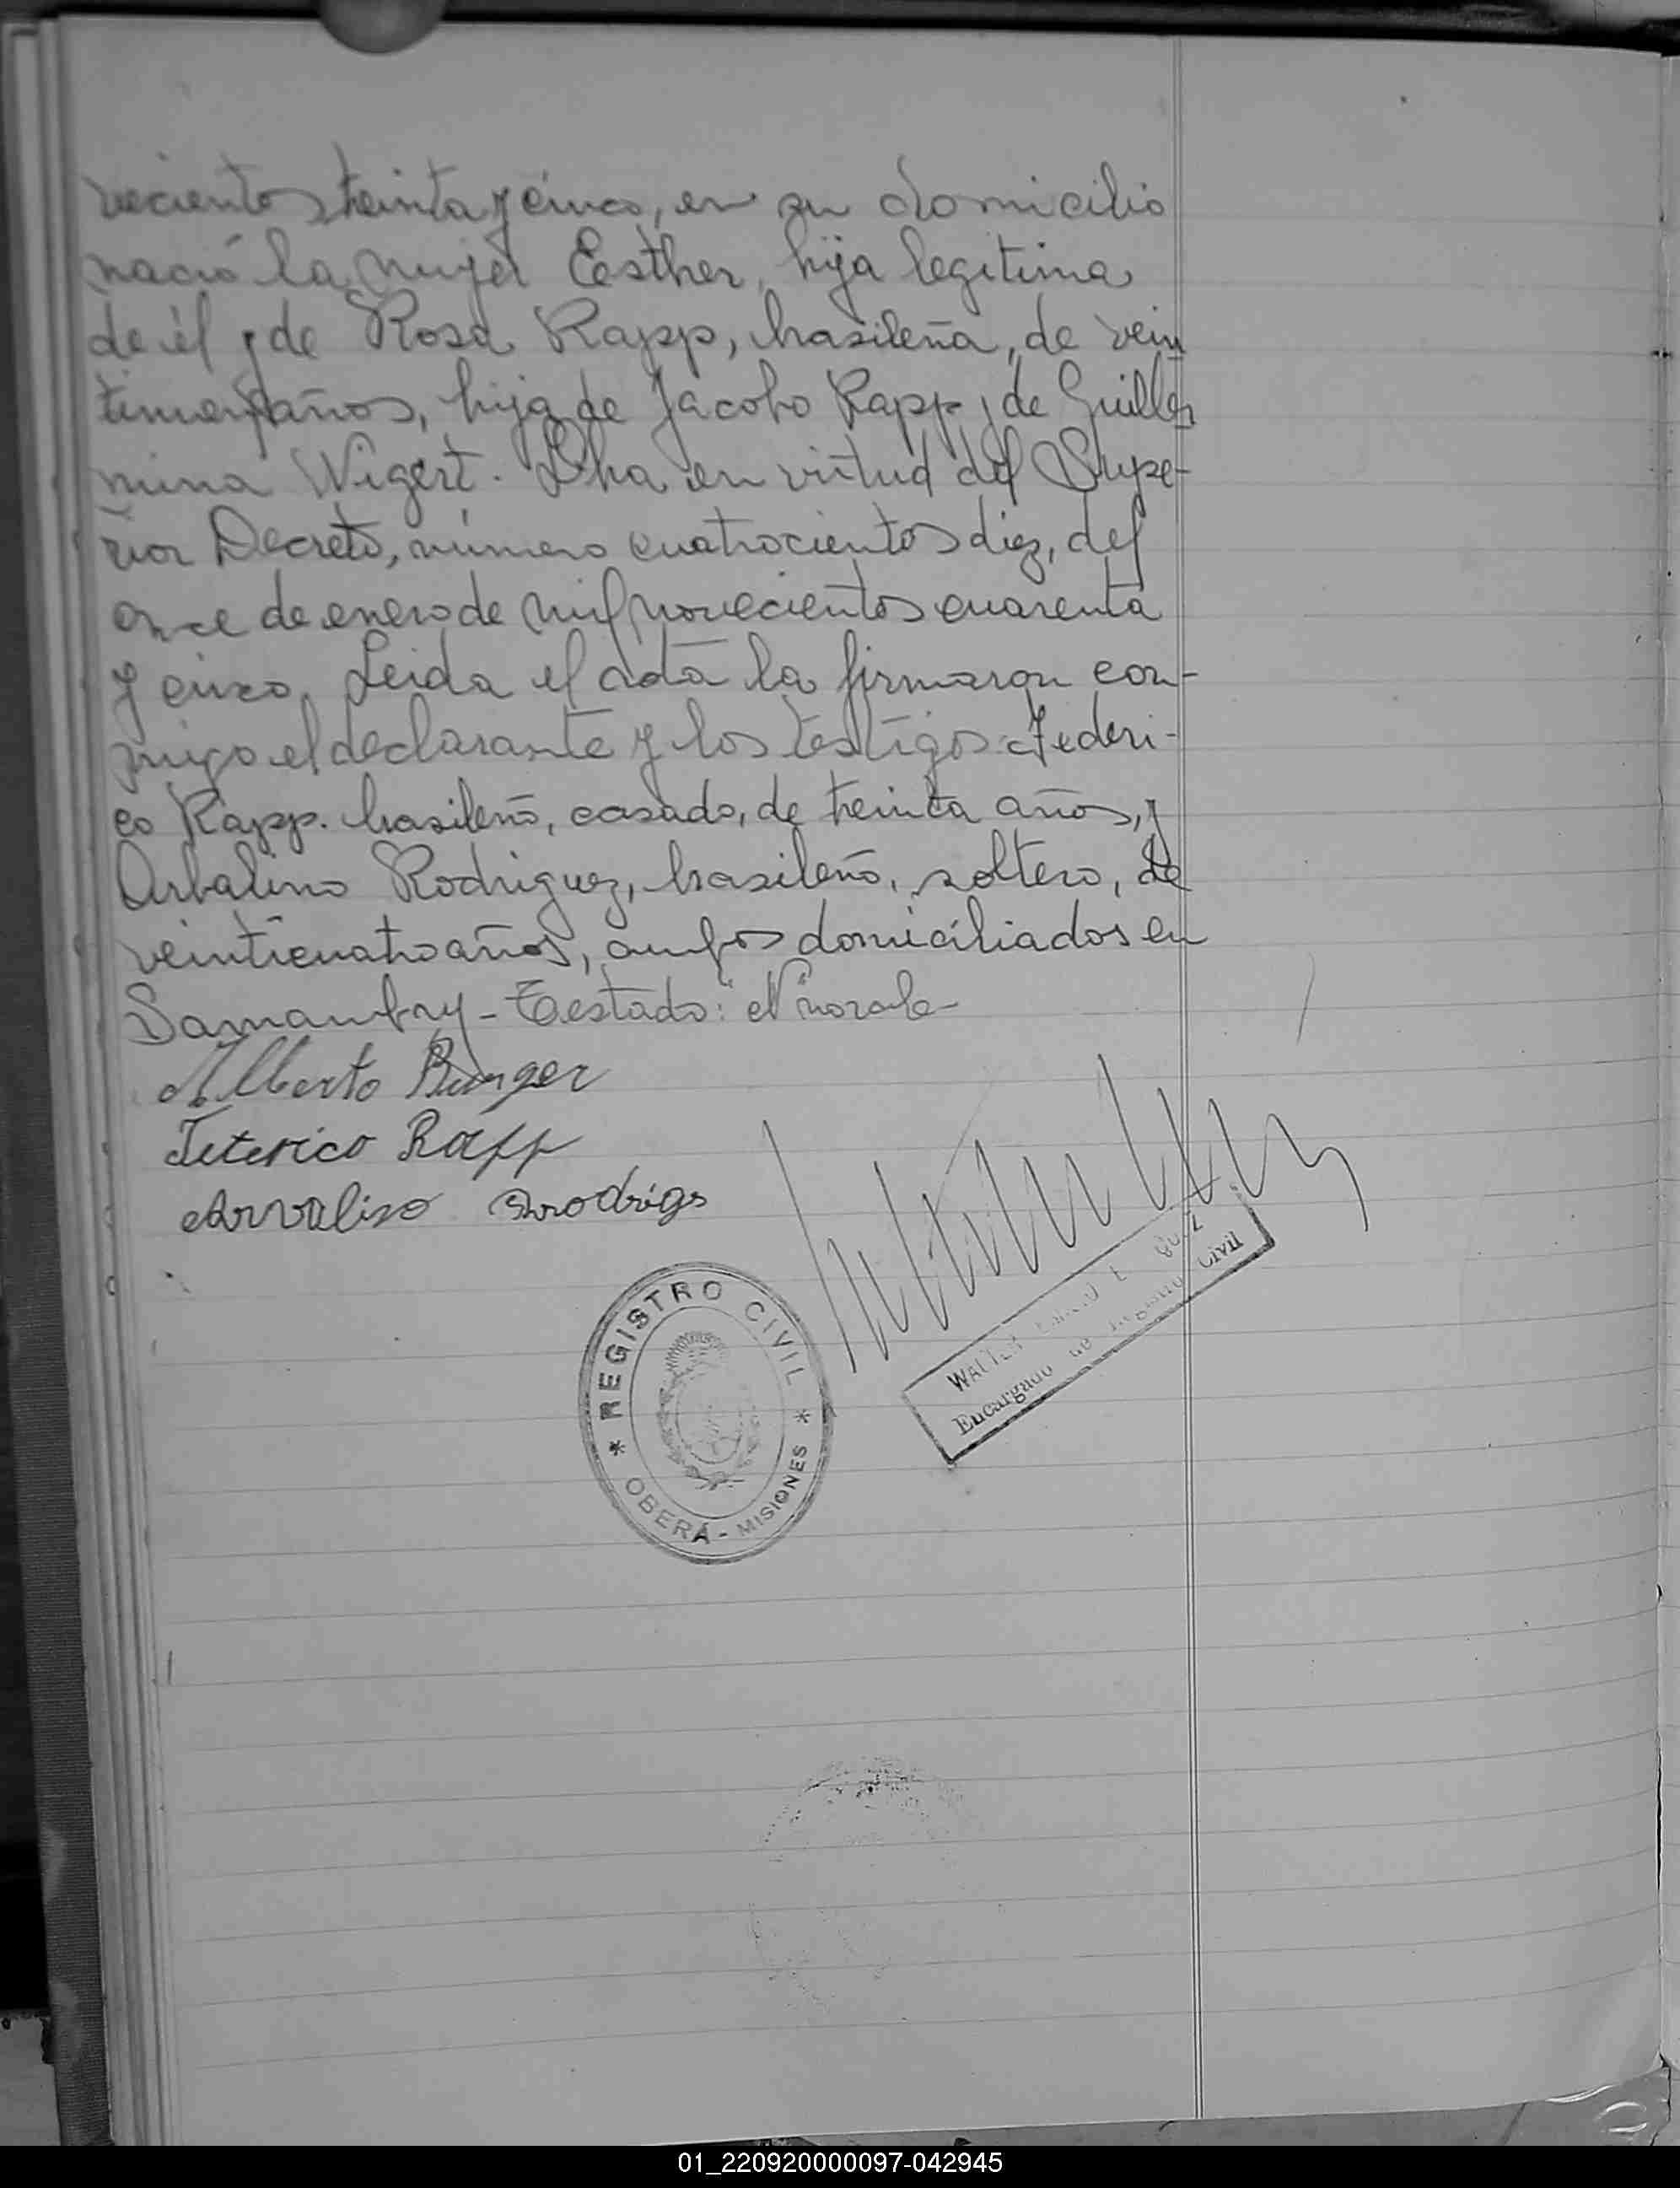 vecientos treinta y cinco, en su domicilio
nació la mujer Eesther, hija legitima
de él y de Rosa Rapp, brasileña, de vein
años, hija de Jacobo Rapp y de Guiller
mina Wigert. en virtud del Supe-
rior Decreto, número cuatrocientos diez, del
once de enero de mil novecientos cuarenta
y cinco. Leida el acta la firmaron con-
migo el declarante y los testigos: Federi-
co Rapp. brasileño, casado, de treinta años, y
Arbalino Rodriguez, brasileño, soltero, de
veinticuatro años, ambos domiciliados en
Samambay - Testado: "el" no vale-
Alberto Burger
Feterico Rapp
Arvalino Rrodrigs
* REGISTRO CIVIL *
OBERÁ - MISIONES
WALTER
Encargado de Registro Civil
01_220920000097-042945